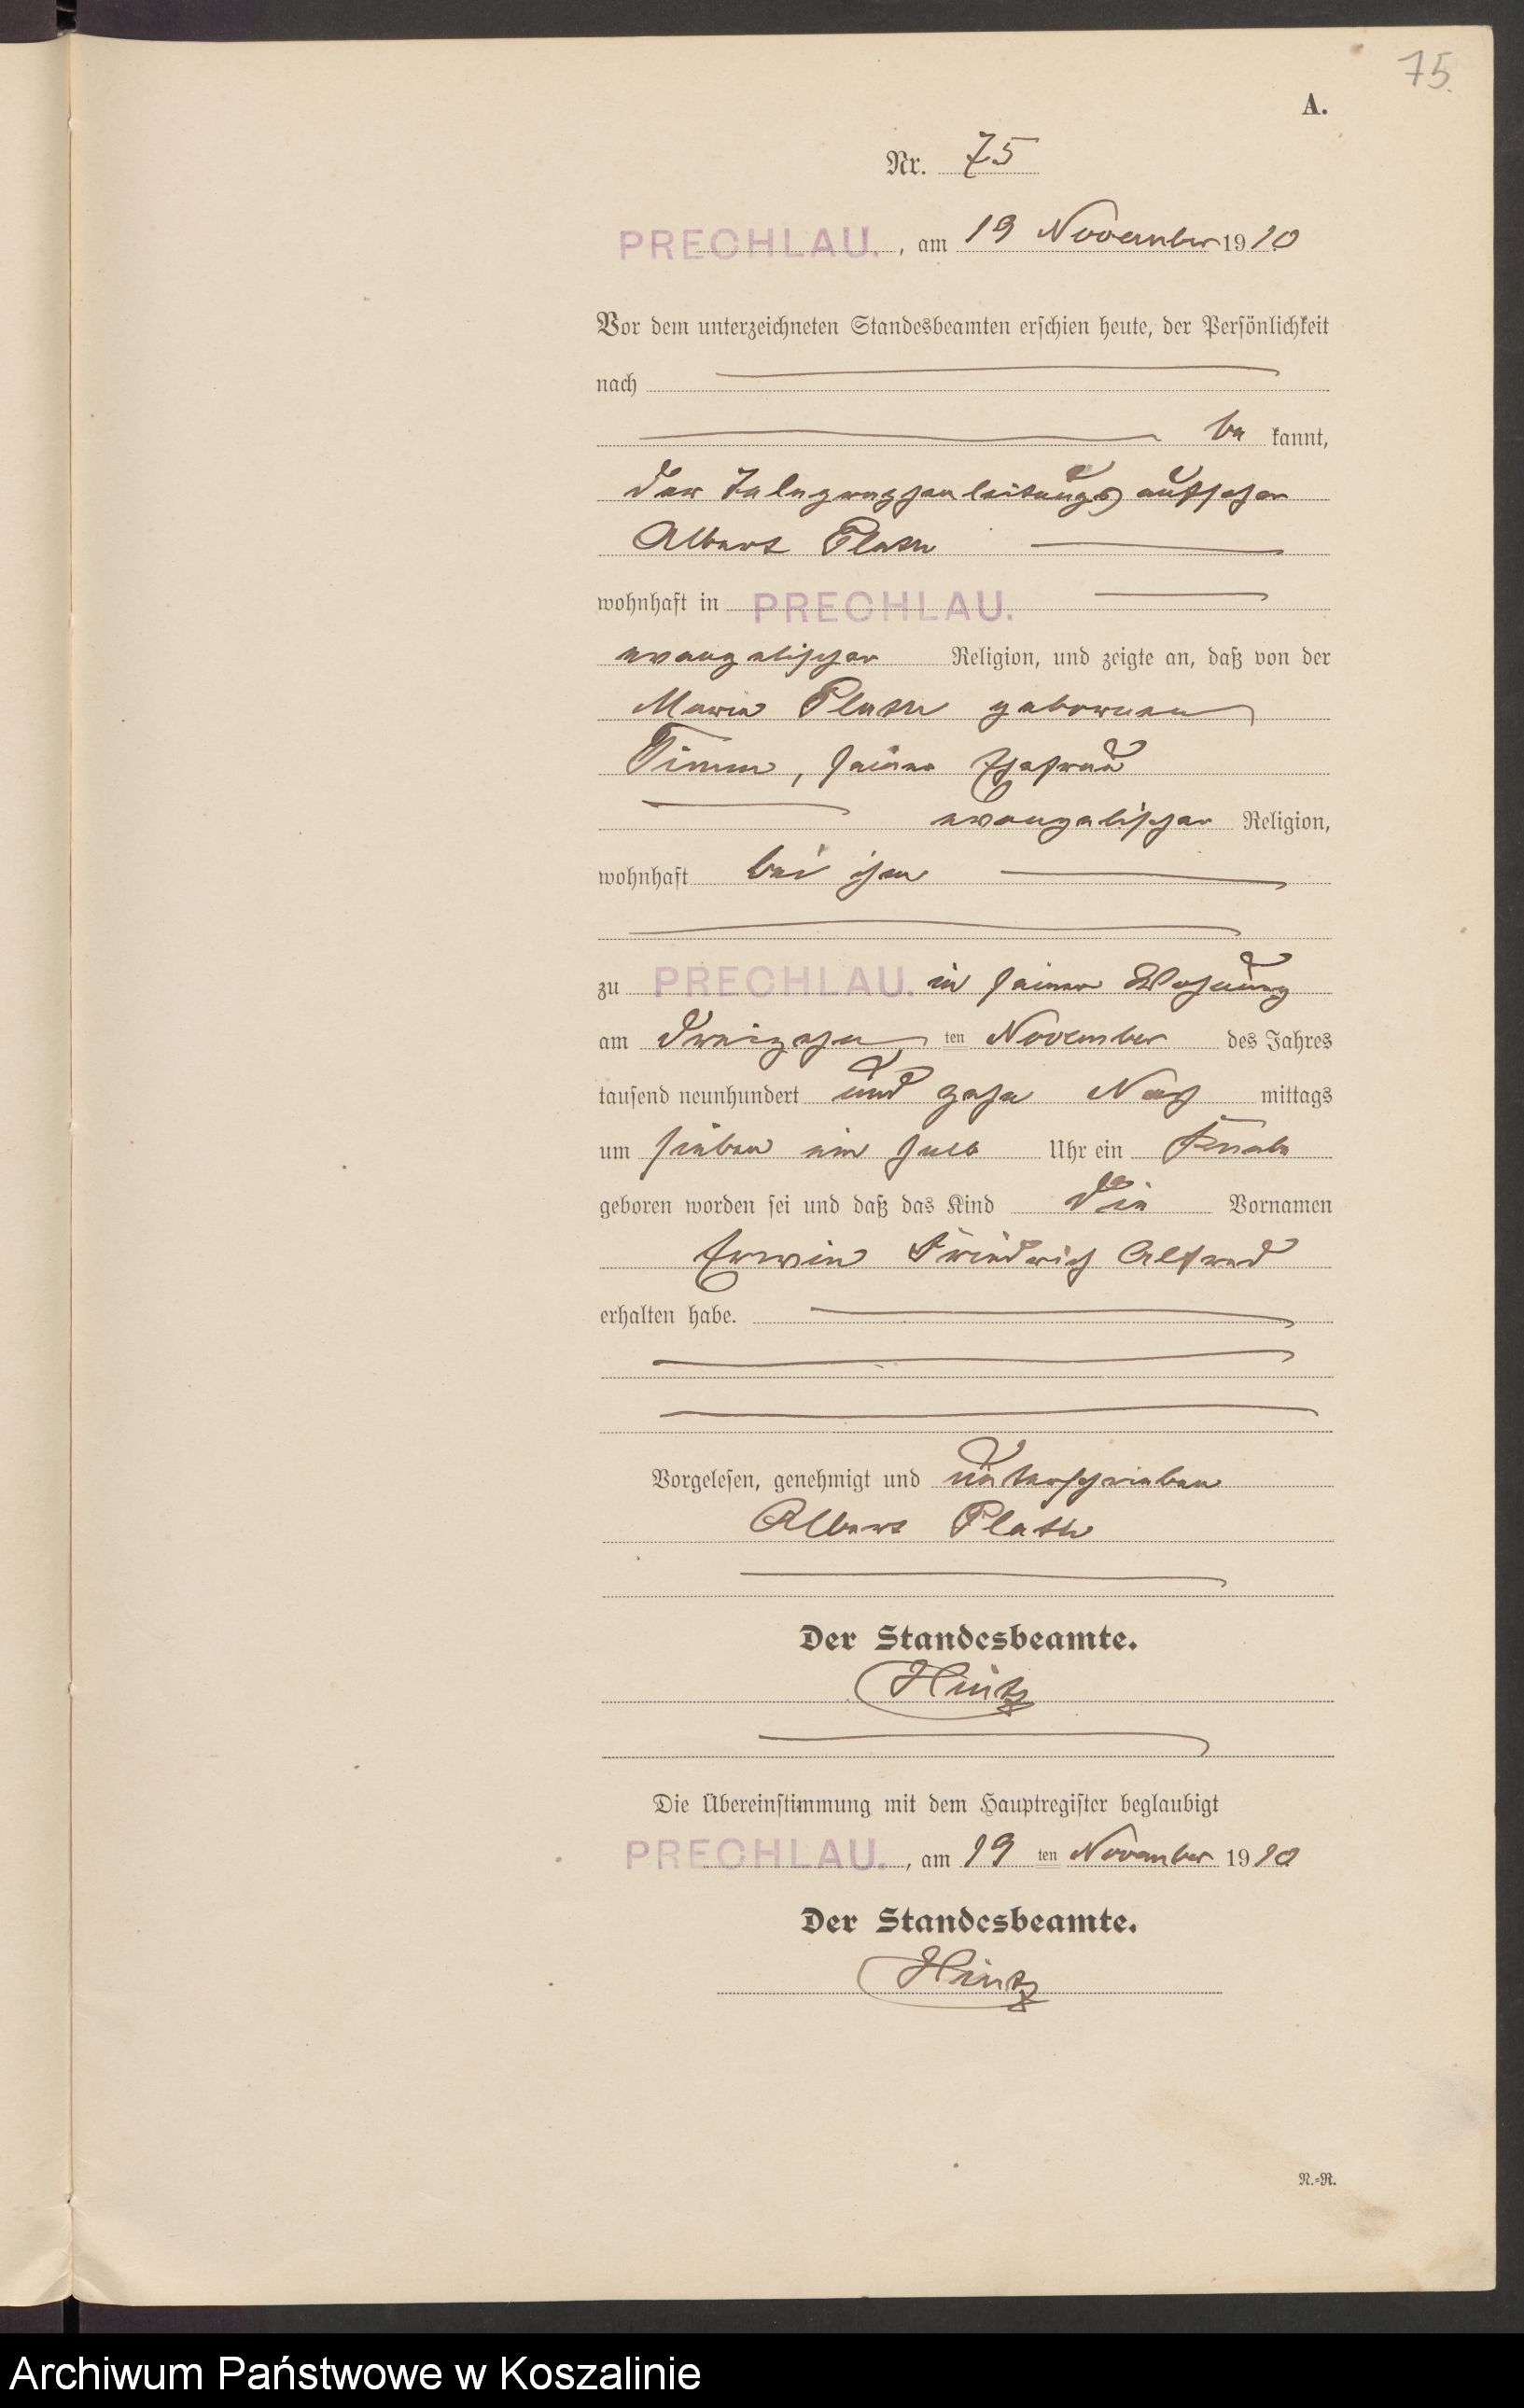 75.
A.
Nr. 75
PRECHLAU. , am 19 November 1910
Vor dem unterzeichneten Standesbeamten erschien heute, der Persönlichkeit
nach
be kannt,
der Telegraphenleitungsaufseher
Albert Plath
wohnhaft in PRECHLAU.
evangelischer Religion, und zeigte an, daß von der
Maria Plath geborenen
Timm, seiner Ehefrau
evangelischer Religion,
wohnhaft bei ihm
zu PRECHLAU. in seiner Wohnung
am dreizehn ten November des Jahres
tausend neunhundert und zehn Nach mittags
um sieben ein halb Uhr ein Knabe
geboren worden sei und daß das Kind die Vornamen
Erwin Friedrich Alfred
erhalten habe.
Vorgelesen, genehmigt und unterschrieben
Albert Plath
Der Standesbeamte.
Hintz
Die Übereinstimmung mit dem Hauptregister beglaubigt
PRECHLAU. , am 19 ten November 1910
Der Standesbeamte.
Hintz
N.-R.
Archiwum Państwowe w Koszalinie